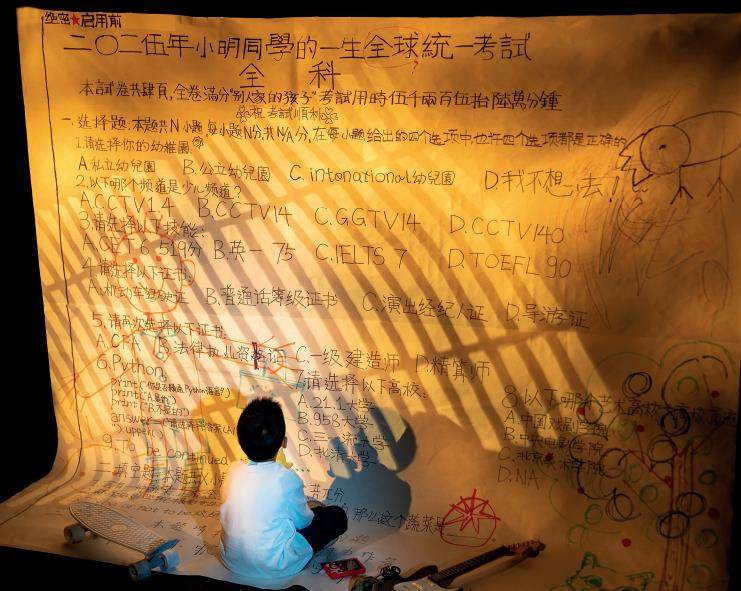 绝密★启用前
二〇二伍年小明同學的一生全球統一考試
全 科
本試卷共肆頁,全卷滿分"别人家的孩子"考試用時伍千兩百伍拾陸萬分鐘
祝考試順利
一.选择题:本题共N小题,每小题N分,共N/A分,在每小题给出的四个选项中,也许四个选项都是正确的
1.请选择你的幼稚園.
A.私立幼兒園 B.公立幼兒園 C.intonational幼兒園 D.我不想去!
2.以下哪个频道是少儿频道?
A.CCTV14 B.CCTV14 C.GGTV14 D.CCTV140
3.请选择以下技能:
A.CET 6 519分 B.英一 75 C.IELTS 7 D.TOEFL 90
4.请选择以下证书.
A.机动车驾驶证 B.普通话等级证书 C.演出经纪人证 D.导游证
5.请再次选择以下证书.
A.CFA B.法律执业资格证 C.一级建造师 D.精算师
6.Python
print("A.是的")
print("B.不是的")
7.请选择以下高校:
A.21.1大学
B.958大学
C.三流大学
D.北清大学
8.以下哪个艺术高校
A.中国戏剧学院
B.中央电影学院
C.北京美术学院
D.NA
9.To be continued
二.填空题:本题共 共π分.
那么这个蔬菜是